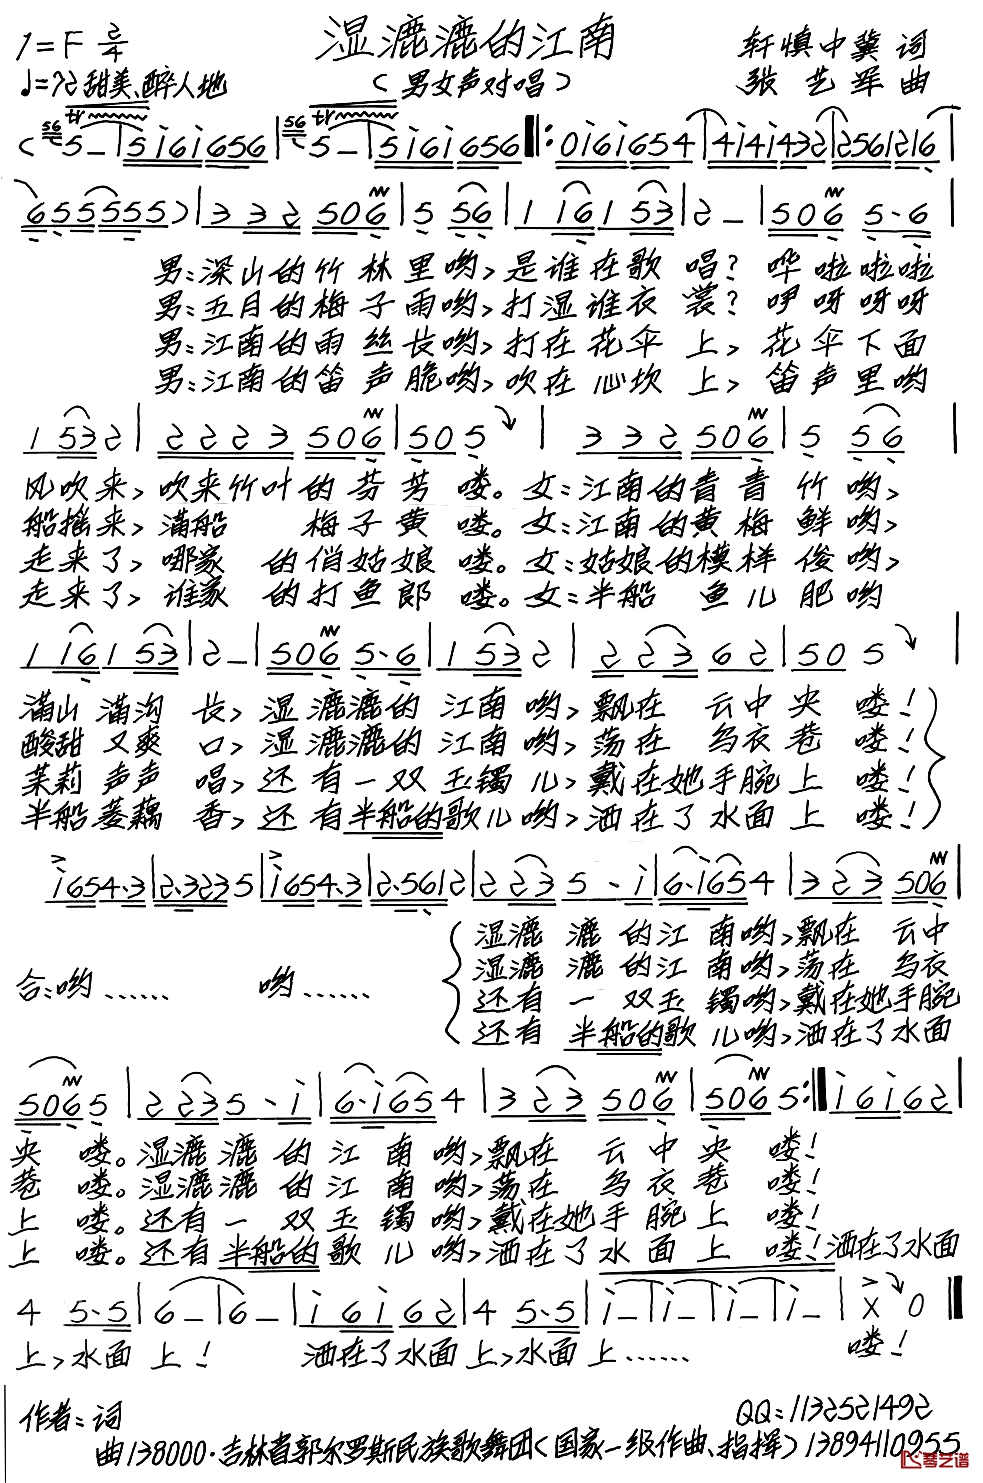 湿漉漉的江南
1=F 2/4
轩慎中冀 词
♩=72 甜美、醉人地
(男女声对唱)
张艺军 曲
男:深山的竹林里哟,是谁在歌唱?哗啦啦啦
男:五月的梅子雨哟,打湿谁衣裳?咿呀呀呀
男:江南的雨丝长哟,打在花伞上,花伞下面
男:江南的笛声脆哟,吹在心坎上,笛声里哟
风吹来,吹来竹叶的芬芳喽。女:江南的青青竹哟,
船摇来,满船梅子黄喽。女:江南的黄梅鲜哟,
走来了,哪家的俏姑娘喽。女:姑娘的模样俊哟,
走来了,谁家的打鱼郎喽。女:半船鱼儿肥哟
满山满沟长,湿漉漉的江南哟,飘在云中央喽!
酸甜又爽口,湿漉漉的江南哟,荡在乌衣巷喽!
茉莉声声唱,还有一双玉镯儿,戴在她手腕上喽!
半船菱藕香,还有半船的歌儿哟,洒在了水面上喽!
湿漉漉的江南哟,飘在云中
湿漉漉的江南哟,荡在乌衣
合:哟…… 哟……
还有一双玉镯哟,戴在她手腕
还有半船的歌儿哟,洒在了水面
央喽。湿漉漉的江南哟,飘在云中央喽!
巷喽。湿漉漉的江南哟,荡在乌衣巷喽!
上喽。还有一双玉镯哟,戴在她手腕上喽!
上喽。还有半船的歌儿哟,洒在了水面上喽!洒在了水面
上,水面上! 洒在了水面上,水面上…… 喽!
作者:词
QQ:1132521492
曲138000·吉林省郭尔罗斯民族歌舞团(国家一级作曲、指挥)13894110955
琴艺谱